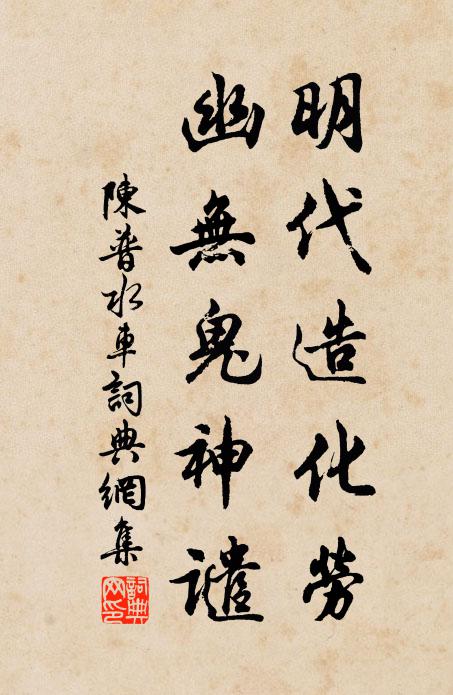 明代造化勞
幽無鬼神譴
陳普水車詞典網集
詞典网印